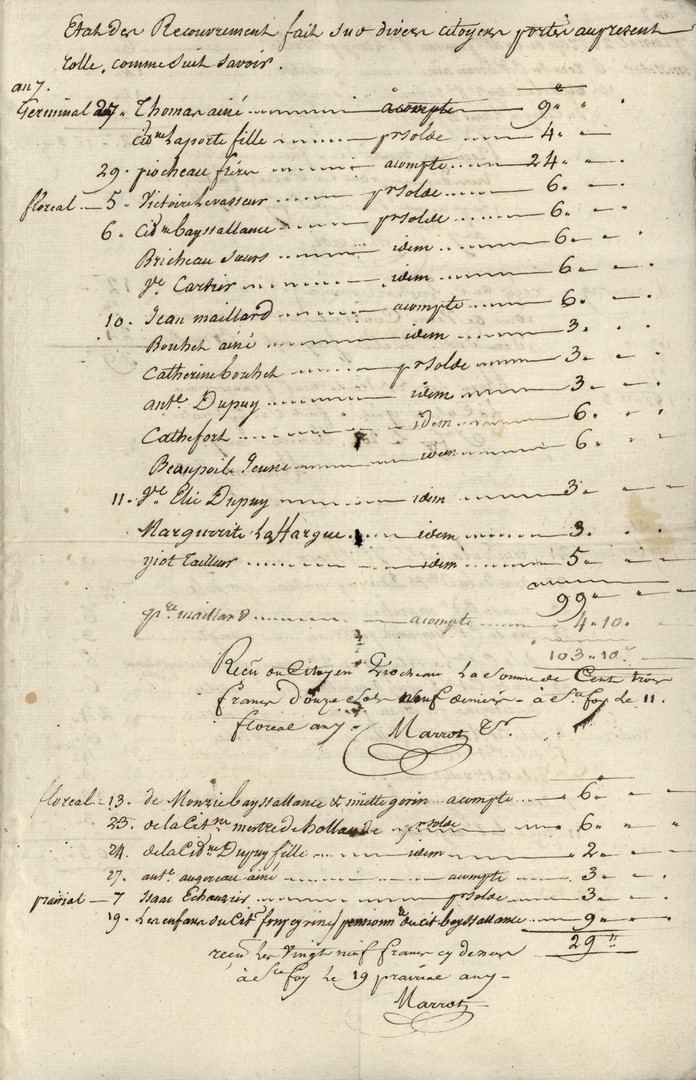 Etat des Recouvrement fait sur divers citoyens portés au present
rolle, comme suit savoir.
an 7.
Germinal 27 " Thomas ainé acompte 9 " "
Citne Laporte fille pr solde 4 " "
29. piocheau frères acompte 24 " "
floreal 5 " Victoire Levasseur pr solde 6 " "
6 " Citne bayssallance pr solde 6 " "
Bricheau Sœurs idem 6 " "
Ve Cartier idem 6 " "
10. Jean maillard acompte 6 " "
Bouhet ainé idem 3 " "
Catherine bouhet pr solde 3 " "
ante Dupuy idem 3 " "
Cathefort idem 6 " "
Beaupoil Jeune idem 6 " "
11. Ve Elie Dupuy idem 3 " "
Marguerite Laffargue idem 3 " "
yiot tailleur idem 5 " "
99 " "
maillard acompte 4 " 10.
103 " 10
Reçu du Citoyen Piocheau La Somme de Cent trois
francs Douze Sols neuf deniers - à Ste foy le 11.
floreal an 7 - Marrot
floreal - 13. de Monzie bayssallance & miette gorin acompte 6 "
23. de la Citne mestre de hollande pr solde 6 " "
24. de la Citne Dupuy fille idem 2 "
27. ante augereau ainé acompte 3 "
prairial - 7 Isaac Echauzier pr solde 3 "
19. Les enfans du Cit. du cit bayssallance 9 "
29 "
reçu Les Vingt neuf francs cy dessus
à Ste foy le 19 prairial an 7 -
Marrot